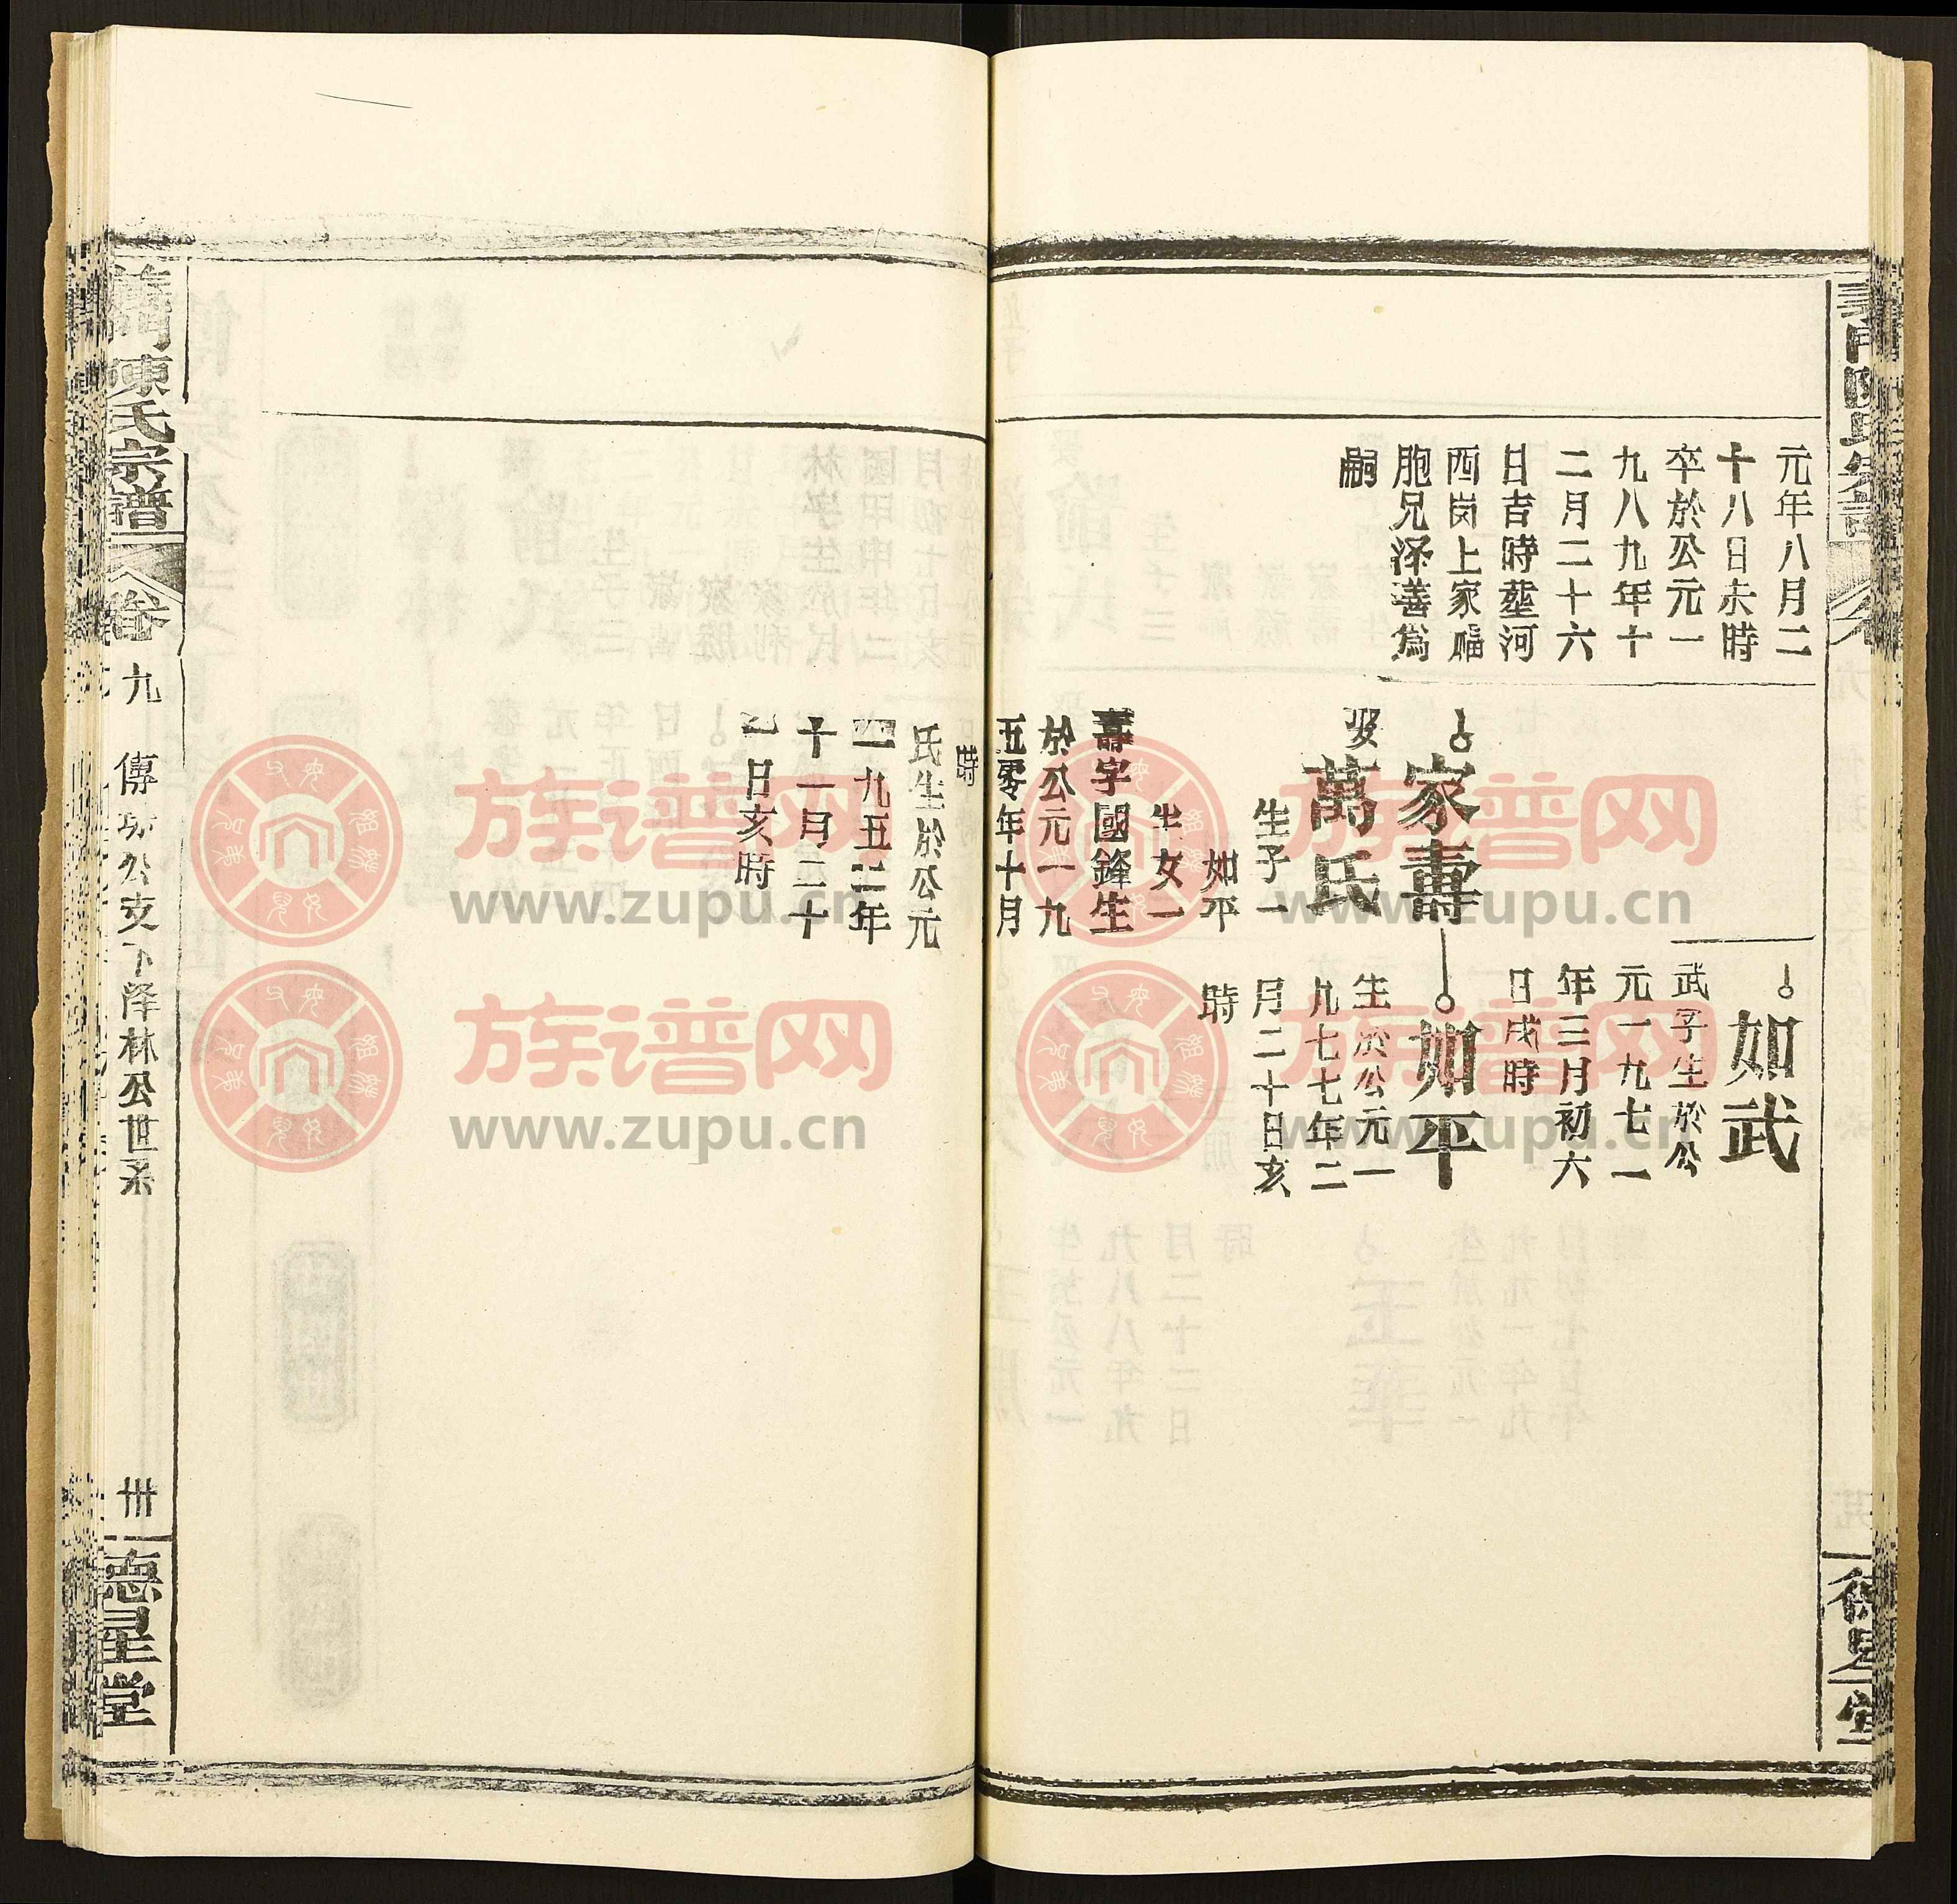 元年八月二
十八日未時
卒於公元一
九八九年十
二月二十六
日吉時塟河
西岗上家福
胞兄泽善爲
嗣
如武
武字生於公
元一九七一
年三月初六
日戌時
家壽
娶萬氏
生子一
如平
生女一
壽字國鋒生
於公元一九
五零年十月
時
氏生於公元
一九五二年
十一月二十
日亥時
如平
生於公元一
九七七年二
月二十日亥
時
義門陳氏宗譜
卷九
傳功公支下泽林公世系
卅
德星堂
族谱网
www.zupu.cn
族谱网
www.zupu.cn
族谱网
www.zupu.cn
族谱网
www.zupu.cn